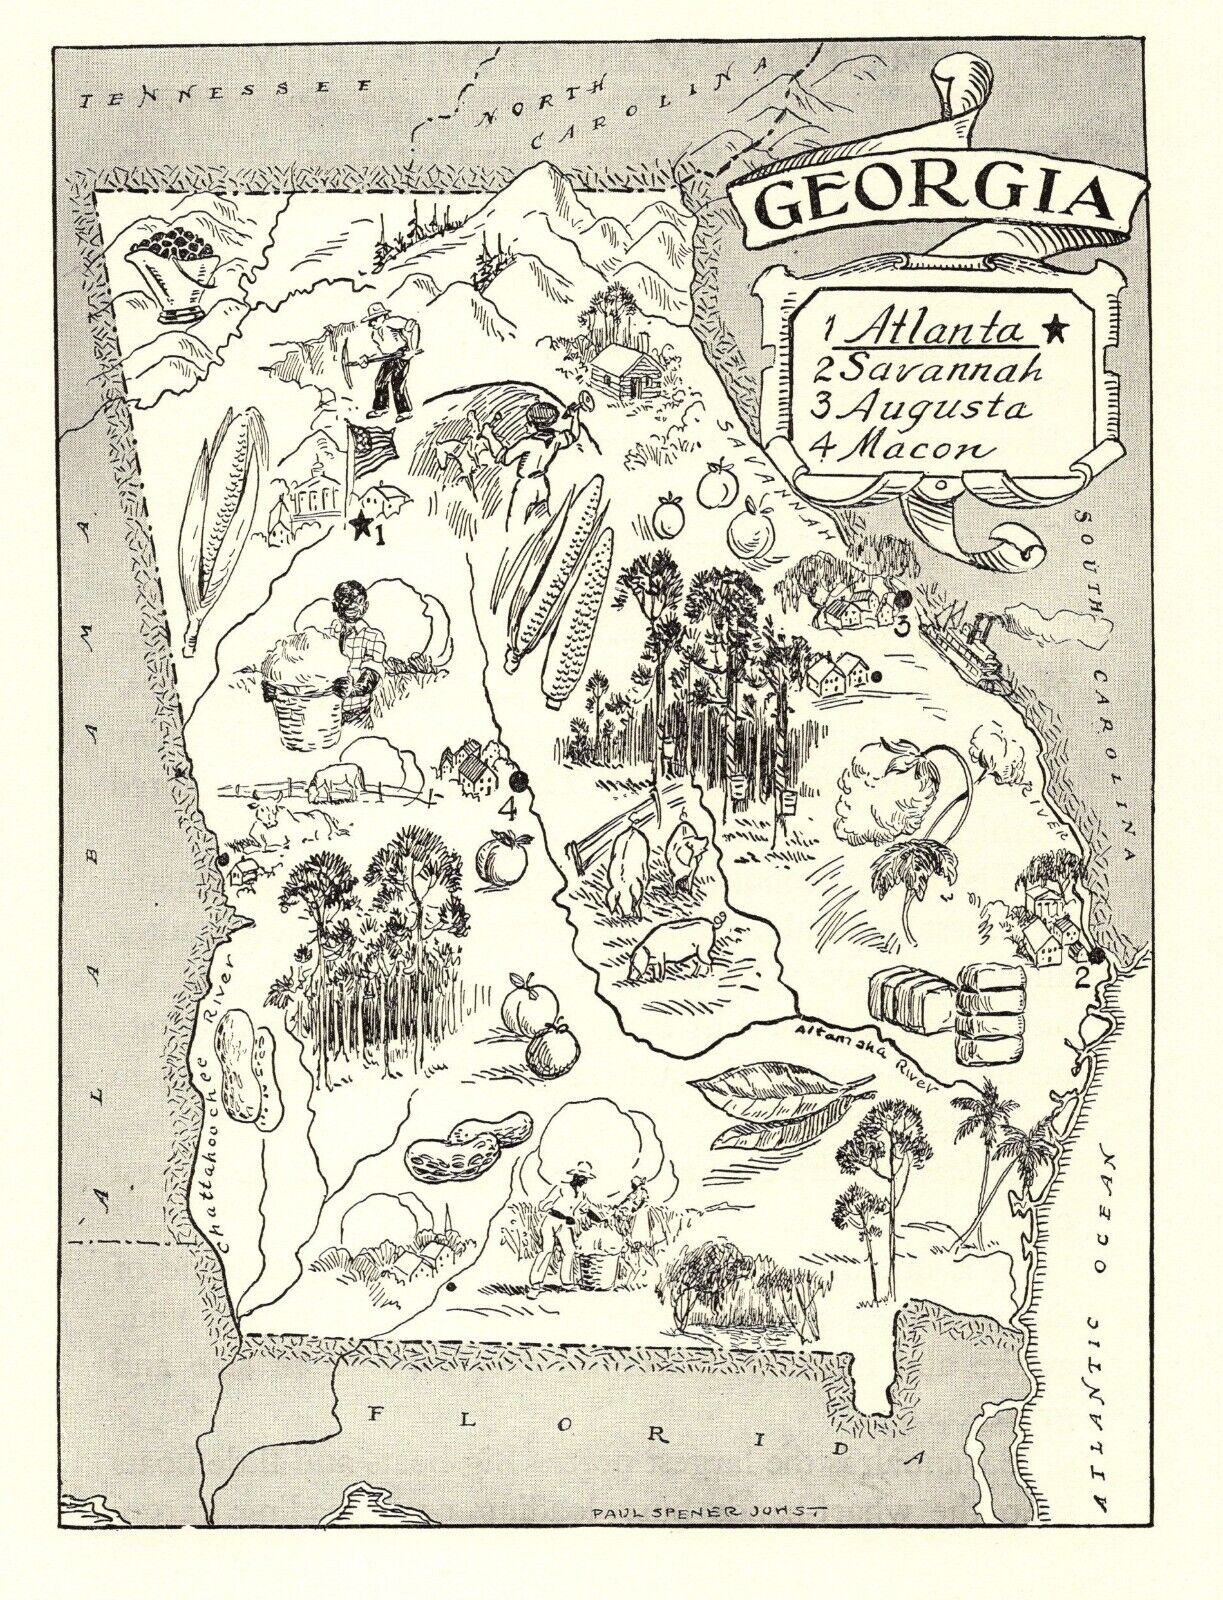 TENNESSEE
NORTH
CAROLINA
GEORGIA
1 Atlanta ★
2 Savannah
3 Augusta
4 Macon
SAVANNAH
RIVER
SOUTH CAROLINA
ALABAMA
★1
3
4
2
Chattahouchee River
Altamaha River
ATLANTIC OCEAN
FLORIDA
PAUL SPENER JOHST